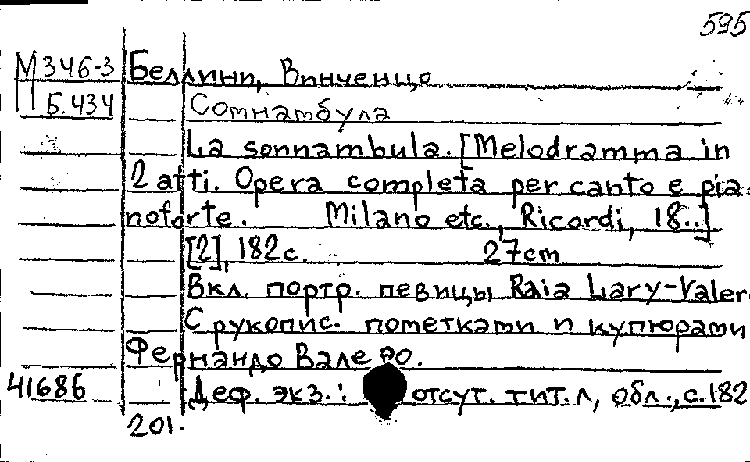 595
М346-3 Беллини, Винченцо
Б.434 Сомнамбула
La sonnambula. [Melodramma in
2 atti. Opera completa per canto e pia-
noforte. Milano etc., Ricordi, 18..]
[2], 182 с. 27cm
Вкл. портр. певицы Raia Lary-Valer
С рукопис. пометками и купюрами
Фернандо Валеро.
41686 Деф. экз.: отсут. тит. л, обл., с. 182
201.